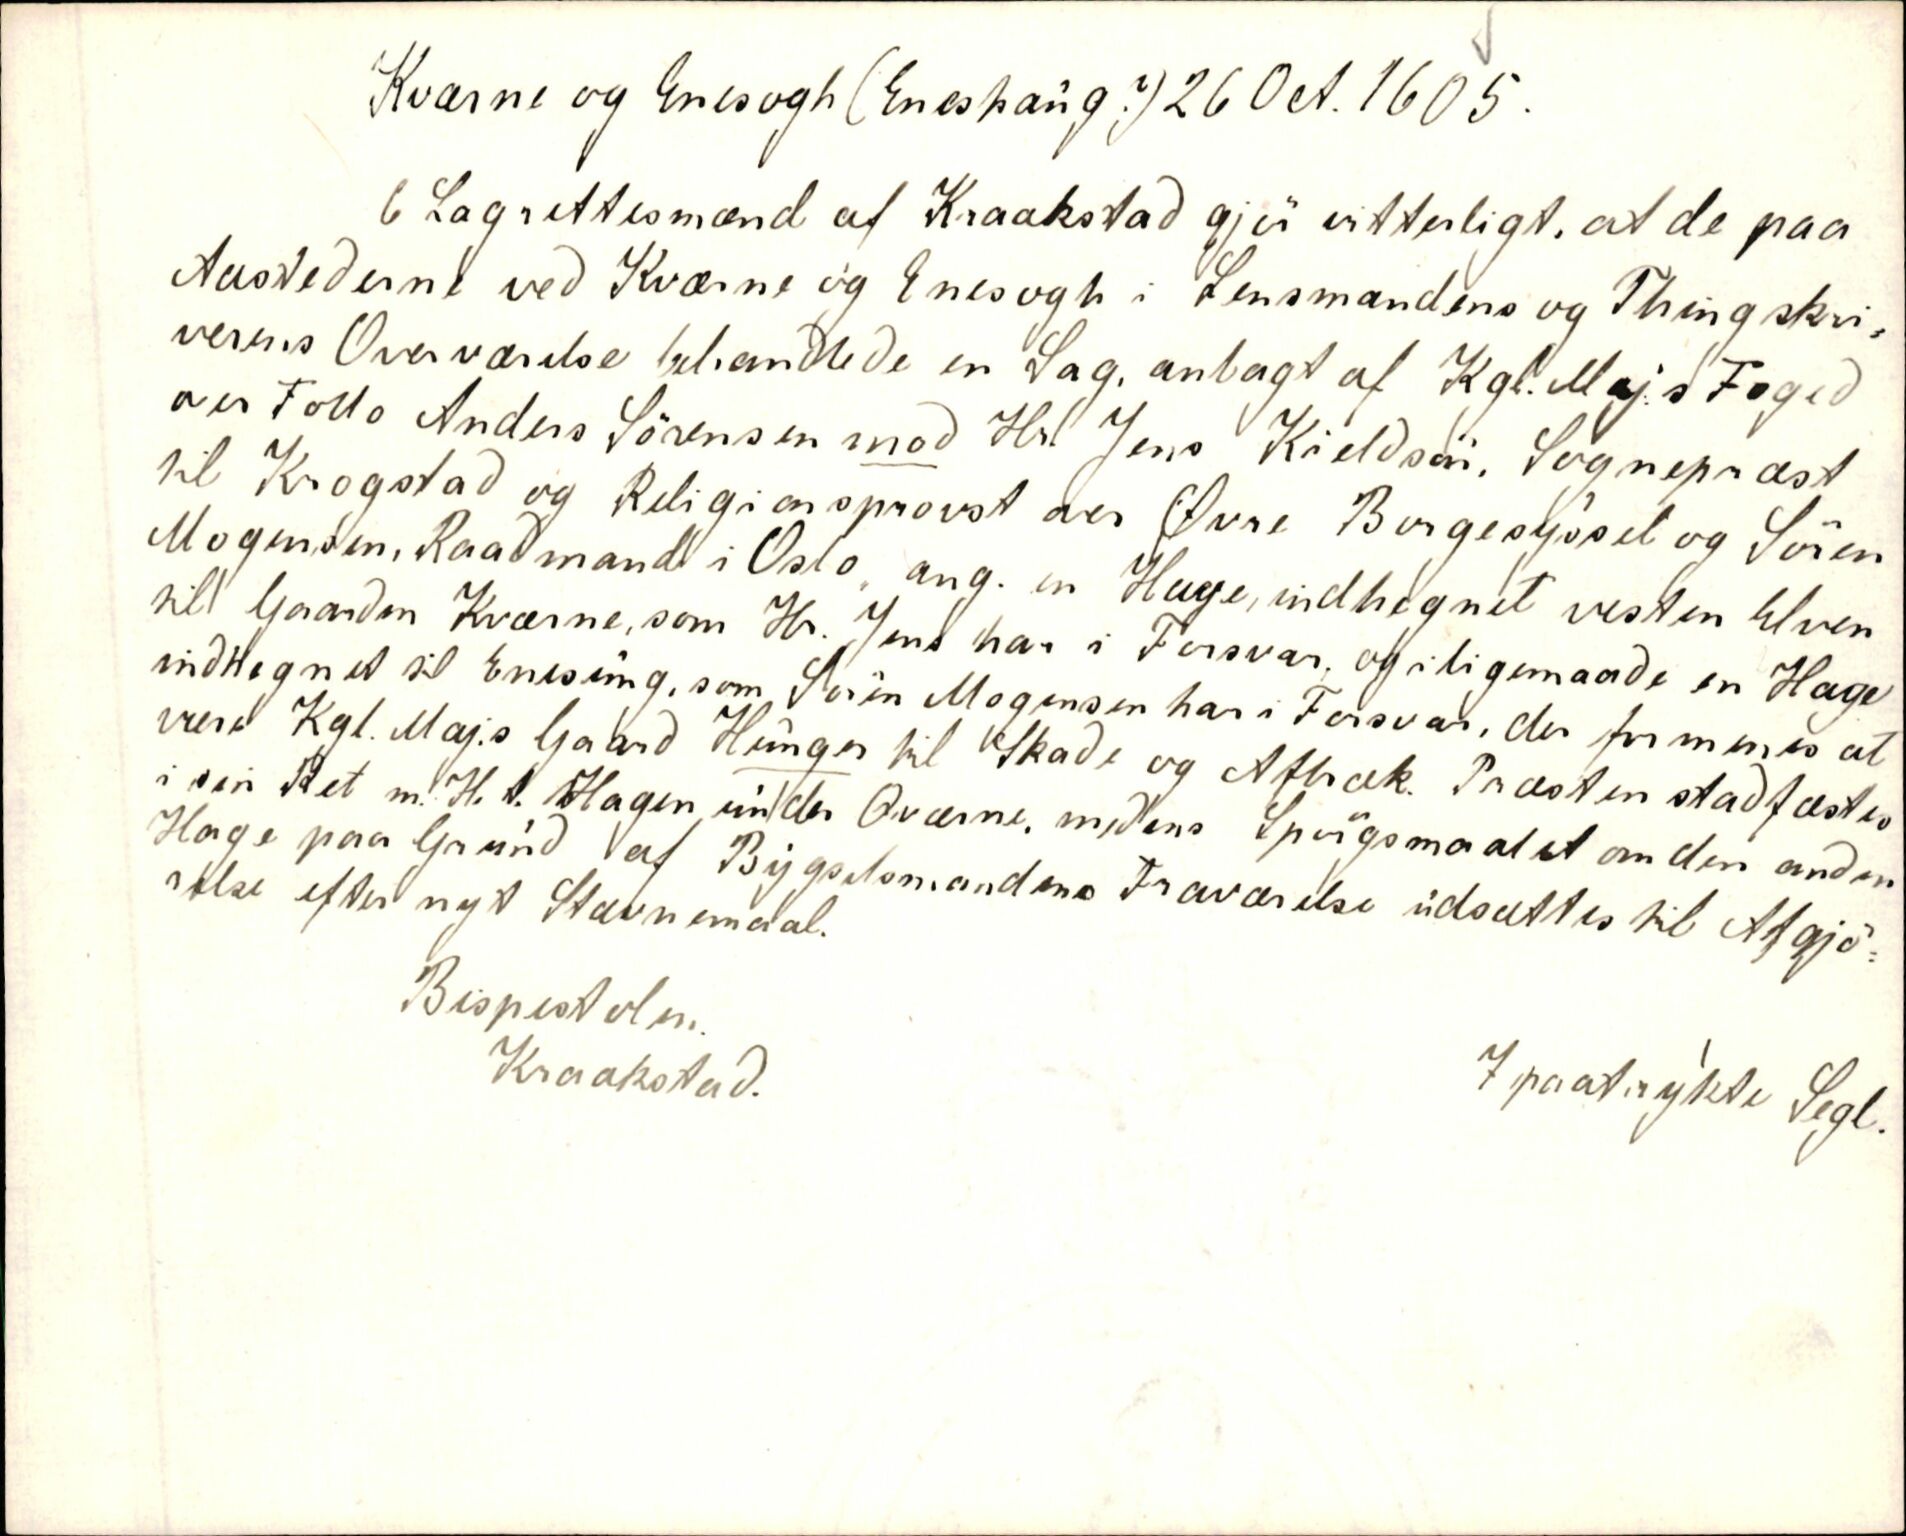 Kværne og Enesogh (Eneshaug?) 26 Oct. 1605.
6 Lagrettesmænd af Kraakstad gjör vitterligt, at de paa
Aastederne ved Kværne og Enesogh i Lensmandens og Thingskri-
verens Overværelse behandlede en Sag, anlagt af Kgl. Maj.s Foged
over Follo Anders Sörensen mod Hr. Jens Kieldsön, Sognepræst
til Krogstad og Religionsprovst over Øvre Borgesyssel og Sören
Mogensen, Raadmand i Oslo, ang. en Hage, indhegnet vesten Elven
til Gaarden Kværne, som Hr. Jens har i Forsvar, og iligemaade en Hage
indhegnet til Enesüng, som Sören Mogensen har i Forsvar, der formenes at
være Kgl. Maj.s Gaard Hunger til Skade og Afbræk. Præsten stadfæstes
i sin Ret m. H. t. Hagen under Qværne, medens Spörgsmaalet om den anden
Hage paa Grund af Bygselsmandens Fraværelse udsættes til Afgjö-
relse efter nyt Stævnemaal.
Bispestolen.
Kraakstad.
7 paatrykte Segl.